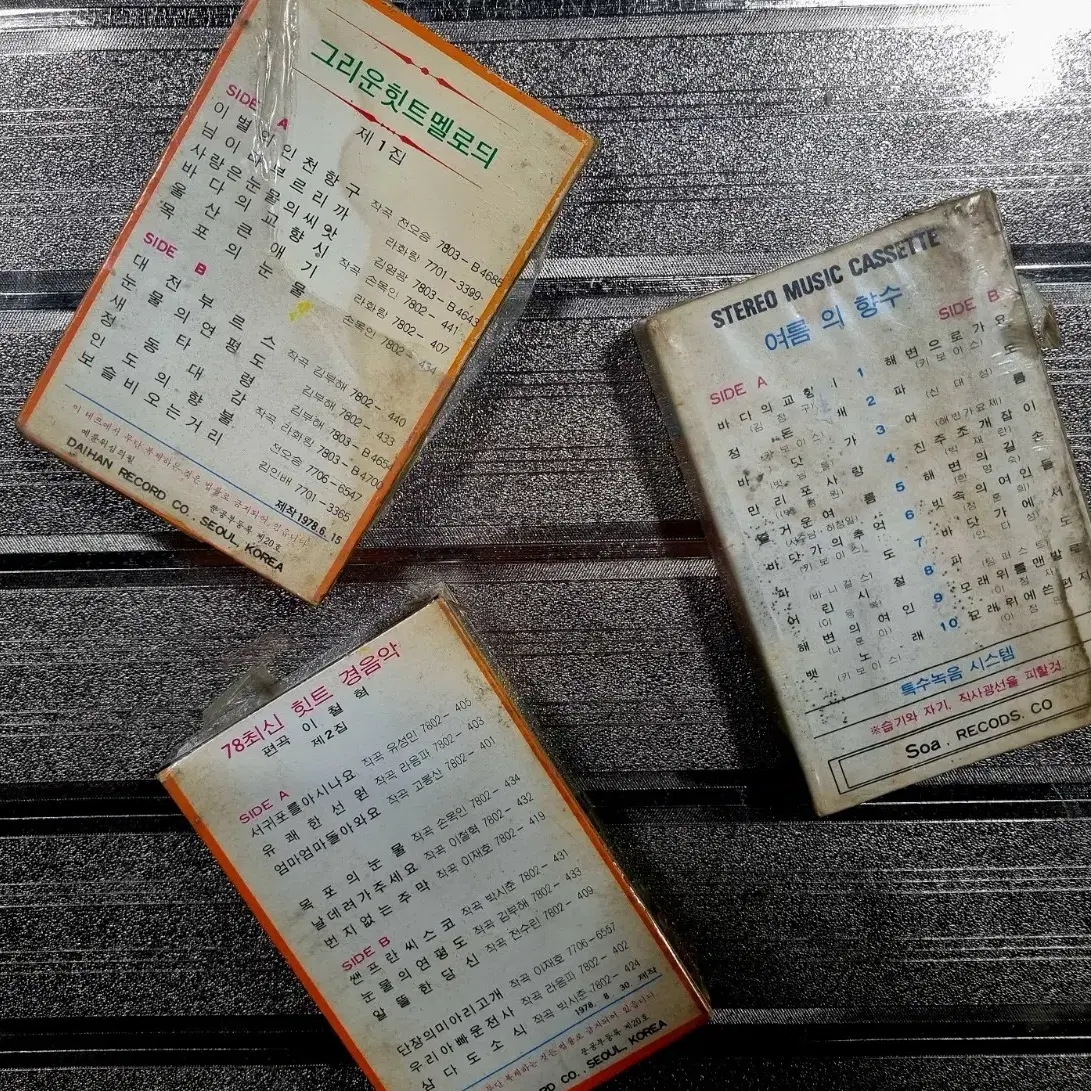 그리운힛트멜로듸
제 1 집
SIDE A
이별의인천항구 작곡 전오승 7803-B4685
님이라부르리까 라화랑 7701-3399
사랑은눈물의씨앗 김영광 7803-B4643
바다의교향시 작곡 손목인 7802-441
울산큰애기 라화랑 7802-407
목포의눈물 손목인 7802-434
SIDE B
대전부르스 작곡 김부해 7802-440
눈물의연평도 김부해 7802-433
새타령 김부해 7803-B4654
정동대감 작곡 라화랑 7803-B4700
인도의향불 전오승 7706-6547
뵤슬비오는거리 김인배 7701-3365
이 테프에서 무단복제하는것은 법률로 금지되어 있읍니다
제작 1978.6.15
예륜위심의필
문공부등록 제20호
DAIHAN RECORD CO. SEOUL, KOREA
STEREO MUSIC CASSETTE
여름의 향수
SIDE A
SIDE B
바다의교향시 1 해변으로가요
(김정구) (키보이스)
정든배 2 파도
(키보이스) (신대성)
바닷가 3 여름
4 진주조개잡이
민리포사랑
즐거운여름 5 해변의길손
바닷가의추억 6 빗속의여인
(키보이스)
파도 7 바닷가에서
(바니걸스)
어린시절 8 파도
(이용복)
해변의여인 9 모래위를맨발로
(나훈아)
뱃노래 10 모래위에쓴편지
(키보이스)
특수녹음 시스템
※습기와 자기, 직사광선을 피할것.
Soa. RECODS. CO
78최신 힛트 경음악
편곡 이철혁
제2집
SIDE A
서귀포를아시나요 작곡 유성민 7802-405
유쾌한선원 작곡 라음파 7802-403
엄마엄마돌아와요 작곡 고봉산 7802-401
목포의눈물 작곡 손목인 7802-434
날데려가주세요 작곡 이철혁 7802-432
번지없는주막 작곡 이재호 7802-419
SIDE B
쌘프란씨스코 작곡 박시춘 7802-431
눈물의연평도 작곡 김부해 7802-433
알뜰한당신 작곡 전수린 7802-409
단장의미아리고개 작곡 이재호 7706-6557
우리아빠운전사 작곡 라음파 7802-402
삼다도소식 작곡 박시춘 7802-424
1978. 8. 30 제작
무단 복제하는 것은 법률로 금지되어 있읍니다
문공부등록 제20호
RD CO. SEOUL, KOREA